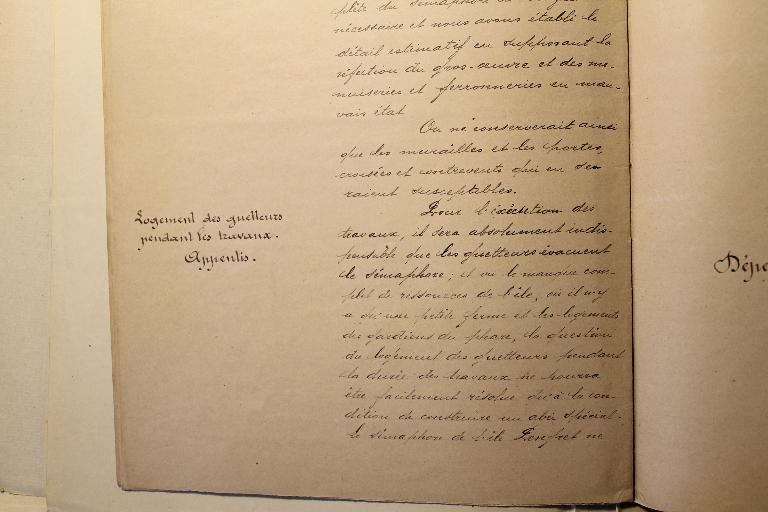 plète du sémaphore
nécessaire et nous avons établi le
détail estimatif en supposant la
réfection du gros-œuvre et des me-
nuiseries et ferronneries en mau-
vais état
On ne conserverait ainsi
que les murailles et les portes,
croisées et contrevents qui en se-
raient susceptables.
Logement des guetteurs
pendant les travaux.
Appentis.
Pour l'exécution des
travaux, il sera absolument indis-
pensable que les guetteurs évacuent
le sémaphore ; et vu le manque com-
plet de ressources de l'île, où il n'y
a qu'une petite ferme et les logements
des gardiens du phare, la question
du logement des guetteurs pendant
la durée des travaux ne pourra
être facilement résolue qu'à la con-
dition de construire un abri spécial.
le sémaphore de l'île Penfret ne
Dépe